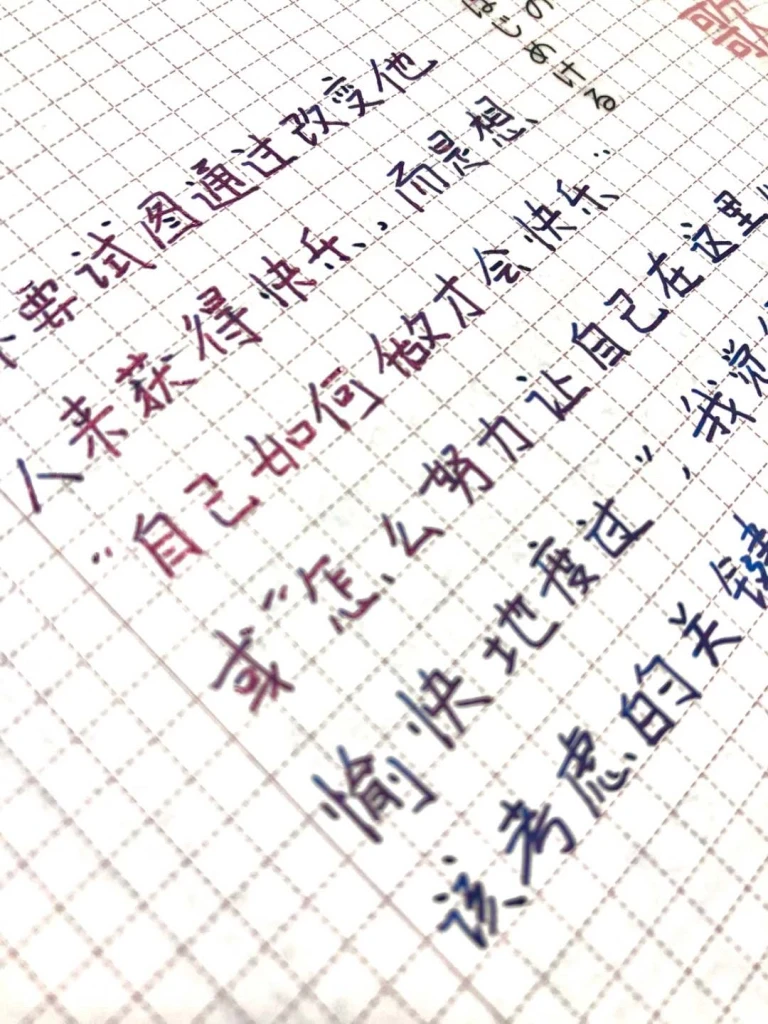 要试图通过改变他
人来获得快乐，而是想
“自己如何做才会快乐”
或“怎么努力让自己在这里
愉快地度过”，我觉
该考虑的关键